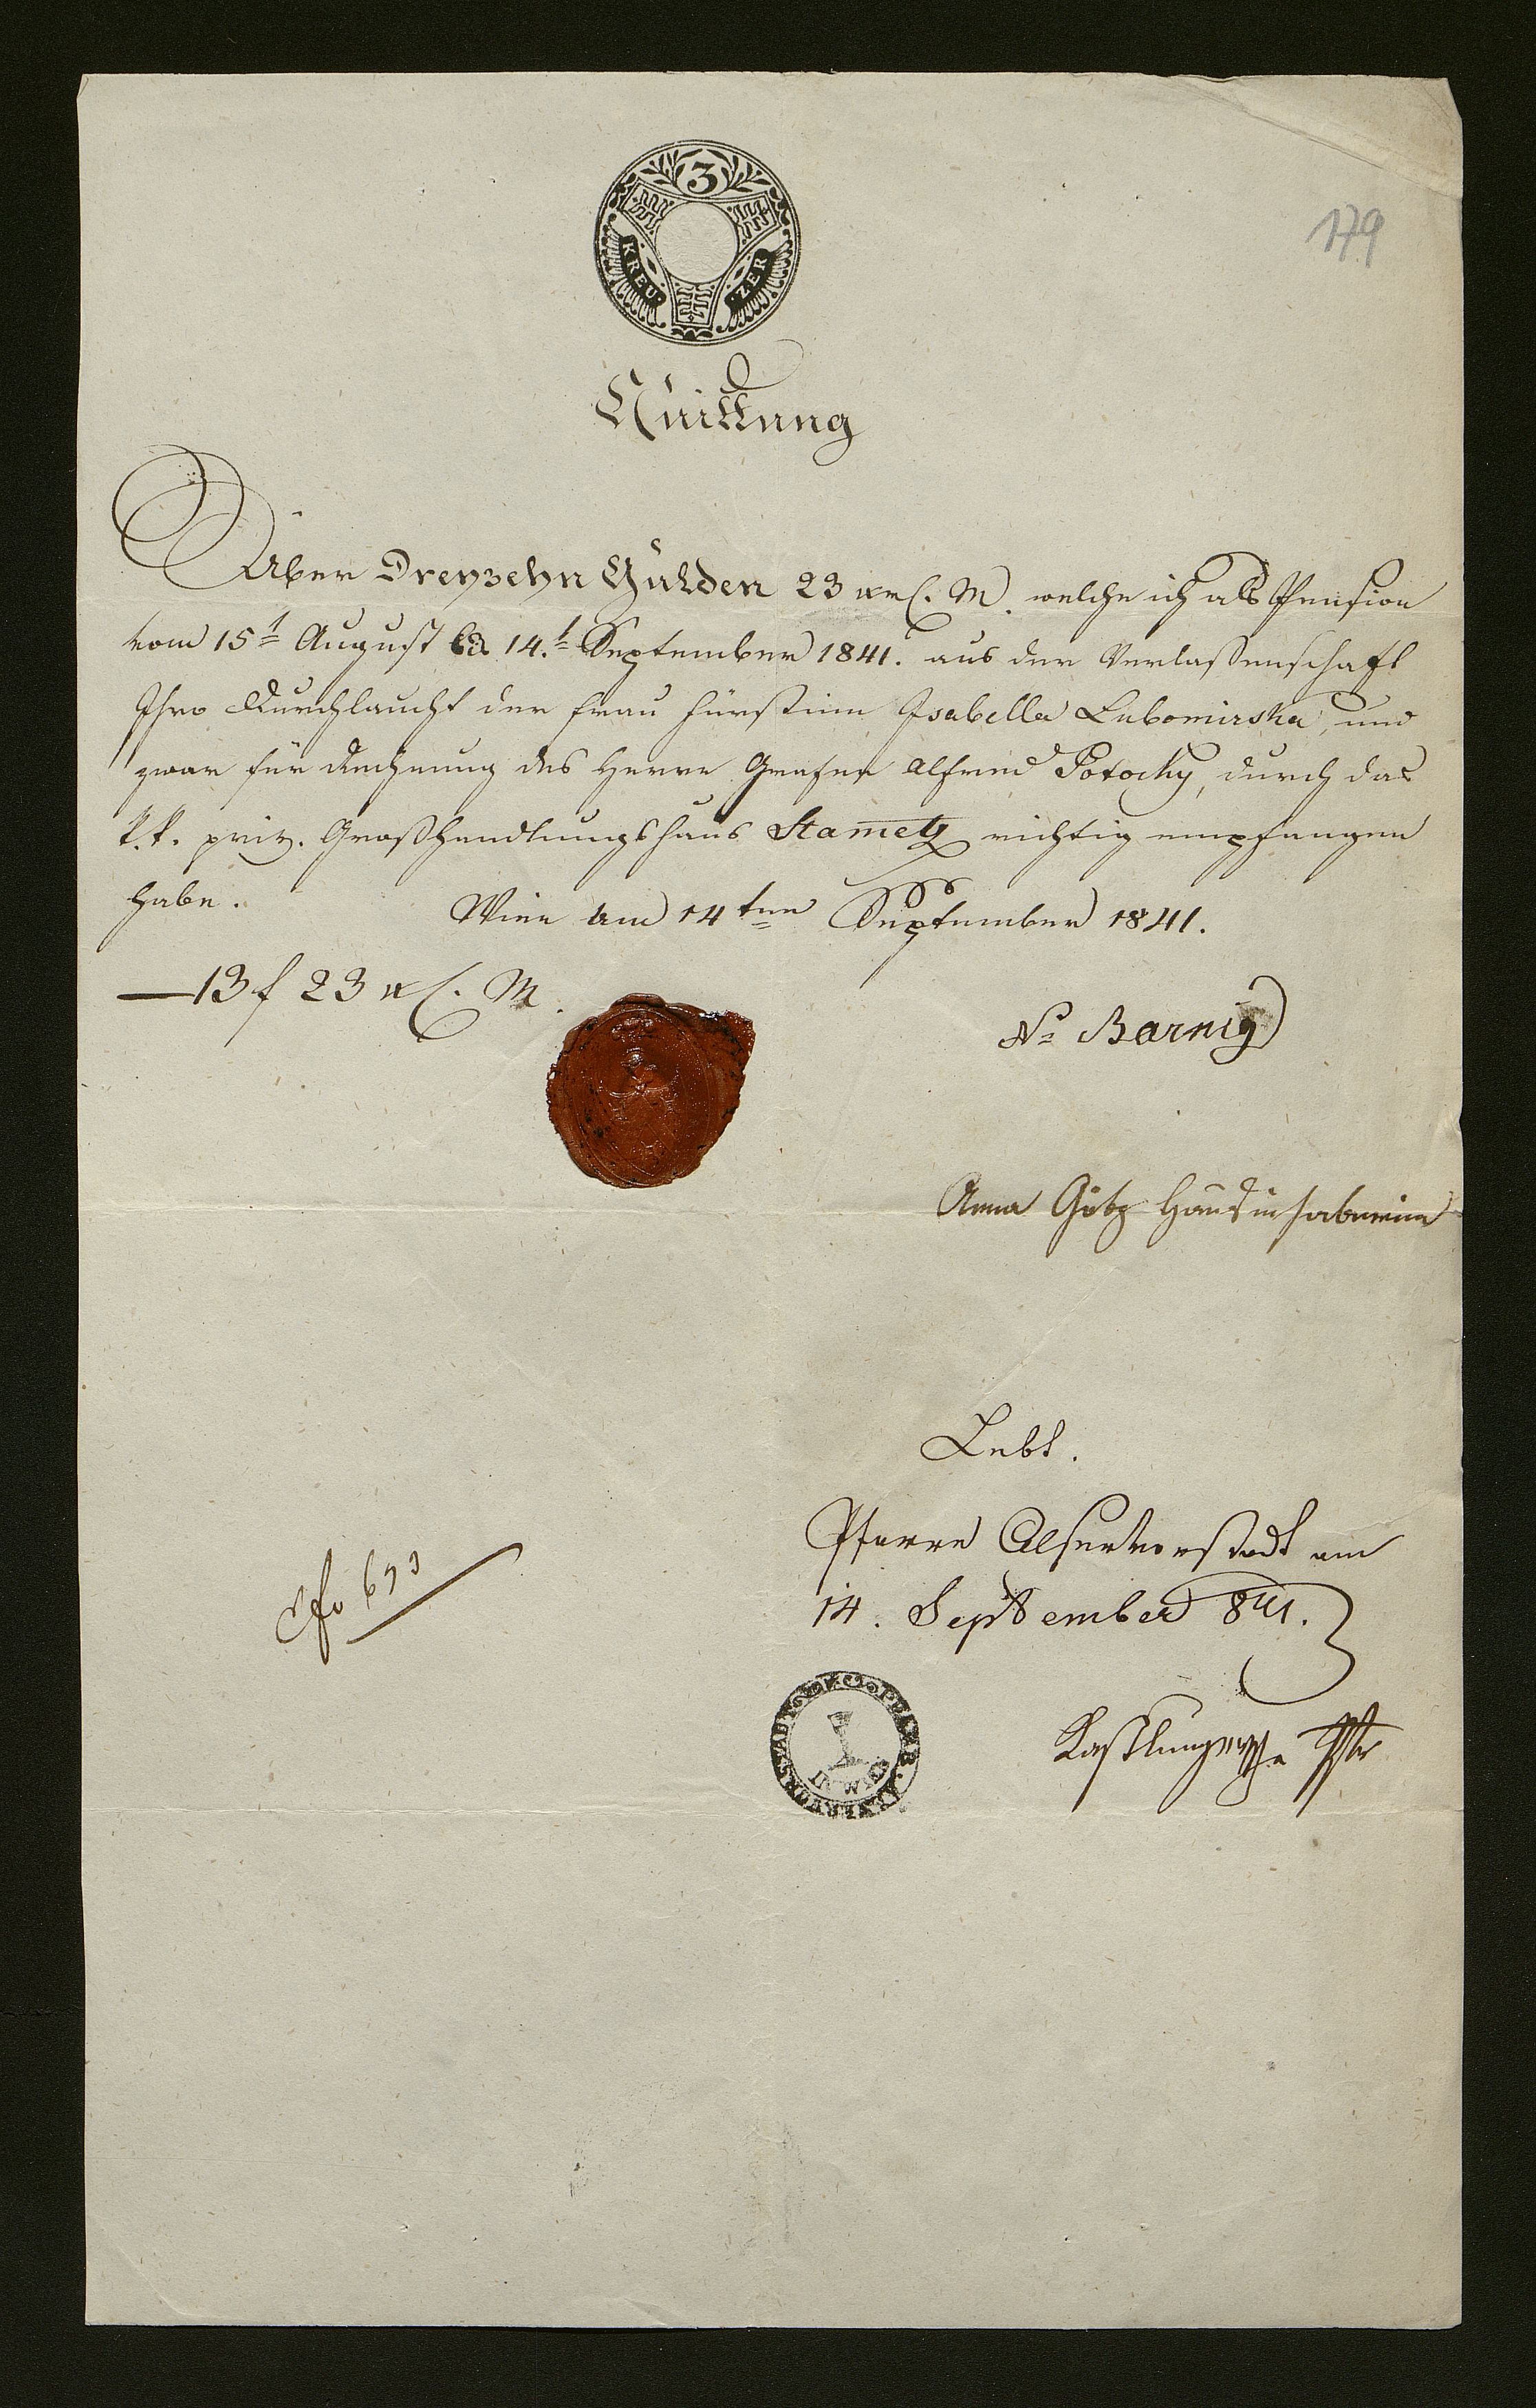 3
KREU ZER
179
Quittung
Über Dreyzehn Gulden 23 xr C. M. welche ich als Pension
vom 15t August bis 14.t September 1841. aus der Verlaßenschaft
Ihro Durchlaucht der Frau Fürstinn Isabella Lubomirska, und
zwar für Rechnung des Herrn Grafen Alfred Potocky, durch das
k. k. priv. Großhandlungshaus Stametz richtig empfangen
habe.
Wien am 14ten September 1841.
13 f 23 x C. M.
Barnig
Anna Götz Hausinhaberinn
Lebt.
Pfarre Alservorstadt am
14. September 841.